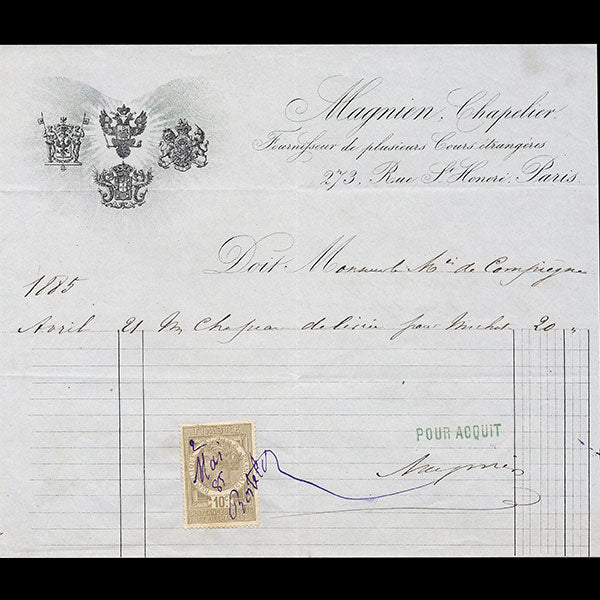 Magnien, Chapelier,
Fournisseur de plusieurs Cours étrangères
273, Rue St. Honoré, Paris
Doit Monsieur le Mis de Compiègne
1885
Avril 21 Un Chapeau de livrée pour Michel 20 "
POUR ACQUIT
Magnien
2
Mai
85
10c